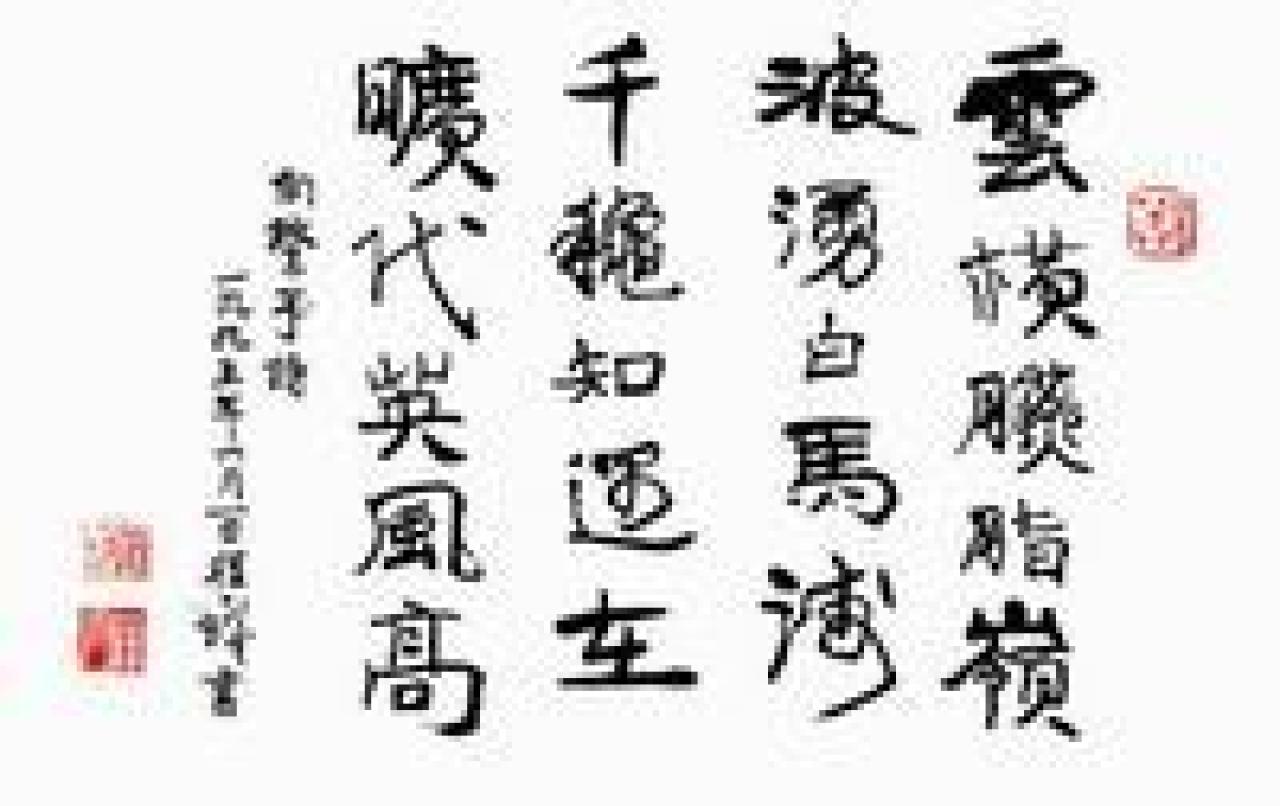 雲橫臙脂嶺
波湧白馬濤
千穐知還在
曠代英風高
詩
一九九五年
書